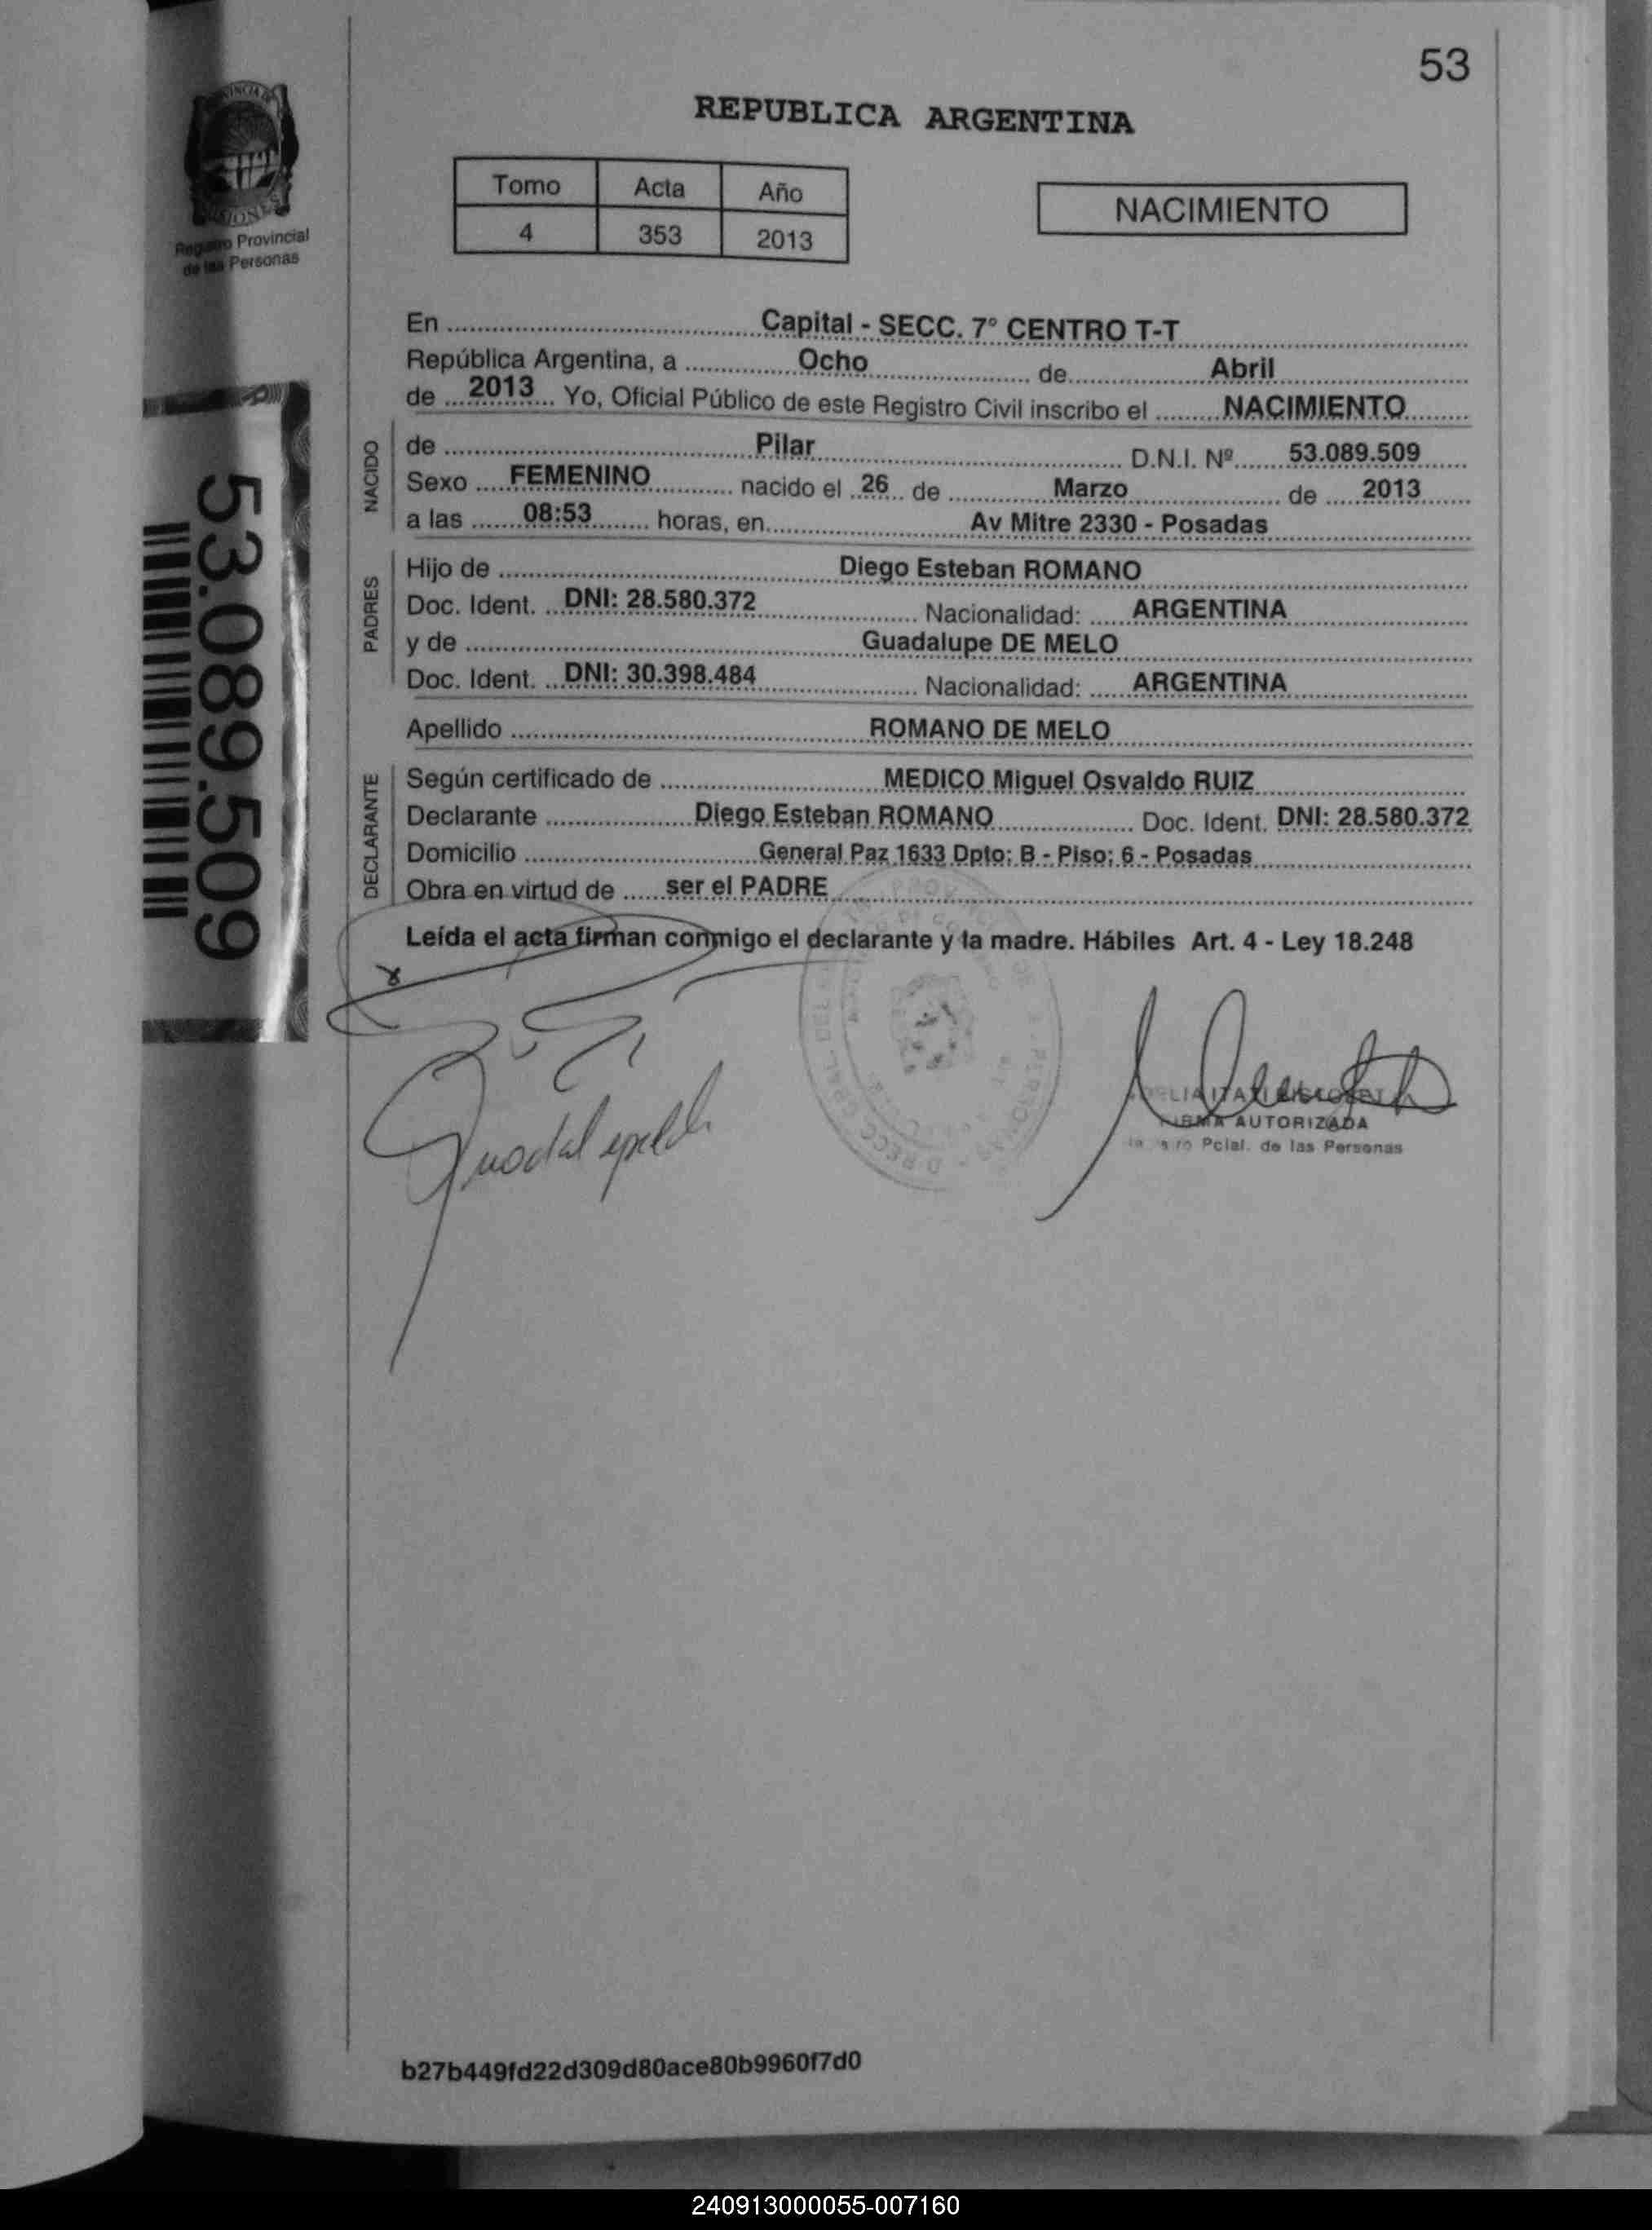 53
PROVINCIA DE
MISIONES
Registro Provincial
de las Personas
REPUBLICA ARGENTINA
Tomo Acta Año
4 353 2013
NACIMIENTO
En Capital - SECC. 7° CENTRO T-T
República Argentina, a Ocho de Abril
de 2013 Yo, Oficial Público de este Registro Civil inscribo el NACIMIENTO
NACIDO
de Pilar D.N.I. Nº 53.089.509
Sexo FEMENINO nacido el 26 de Marzo de 2013
a las 08:53 horas, en Av Mitre 2330 - Posadas
PADRES
Hijo de Diego Esteban ROMANO
Doc. Ident. DNI: 28.580.372 Nacionalidad: ARGENTINA
y de Guadalupe DE MELO
Doc. Ident. DNI: 30.398.484 Nacionalidad: ARGENTINA
Apellido ROMANO DE MELO
DECLARANTE
Según certificado de MEDICO Miguel Osvaldo RUIZ
Declarante Diego Esteban ROMANO Doc. Ident. DNI: 28.580.372
Domicilio General Paz 1633 Dpto: B - Piso: 6 - Posadas
Obra en virtud de ser el PADRE
Leída el acta firman conmigo el declarante y la madre. Hábiles Art. 4 - Ley 18.248
53.089.509
FIRMA AUTORIZADA
Pcial. de las Personas
b27b449fd22d309d80ace80b9960f7d0
240913000055-007160